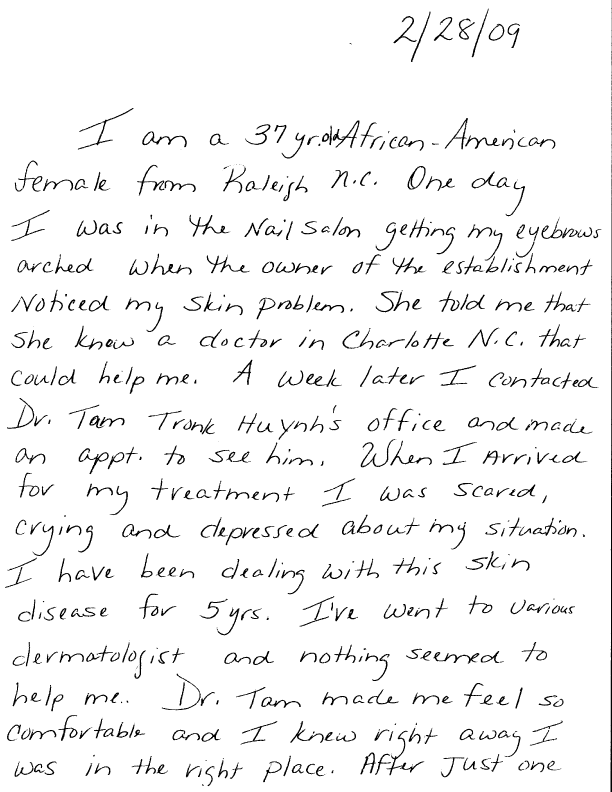 2/28/09
I am a 37 yr. old African-American
female from Raleigh N.C. One day
I was in the Nail Salon getting my eyebrows
arched when the owner of the establishment
Noticed my skin problem. She told me that
she know a doctor in Charlotte N.C. that
could help me. A week later I contacted
Dr. Tam Tronk Huynh's office and made
an appt. to see him. When I Arrived
for my treatment I was scared,
crying and depressed about my situation.
I have been dealing with this skin
disease for 5 yrs. I've went to various
dermatologist and nothing seemed to
help me.. Dr. Tam made me feel so
comfortable and I knew right away I
was in the right place. After just one